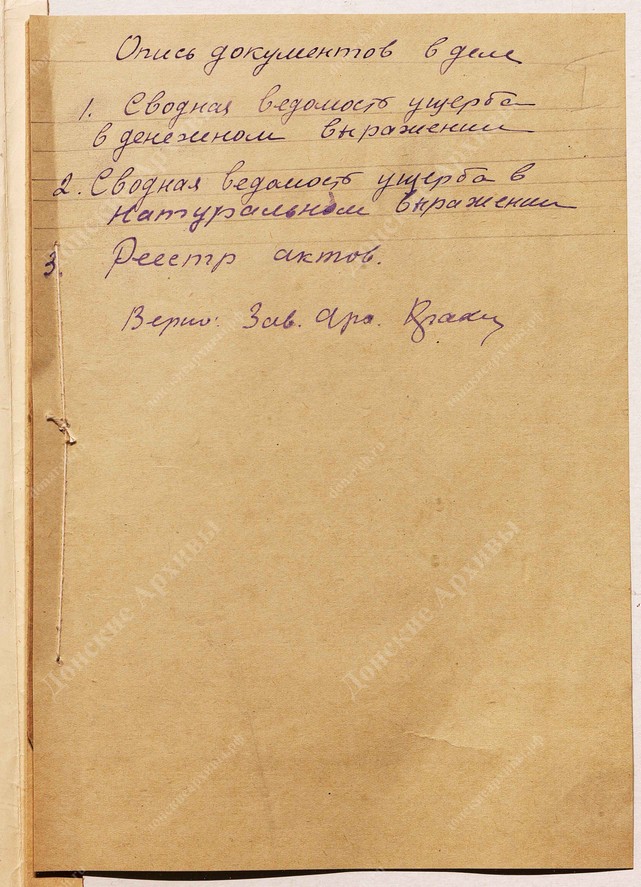 Опись документов в деле
1. Сводная ведомость ущерба
в денежном выражении
2. Сводная ведомость ущерба в
натуральном выражении
3. Реестр актов.
Верно: Зав. Арх.
Донские Архивы
Донские Архивы